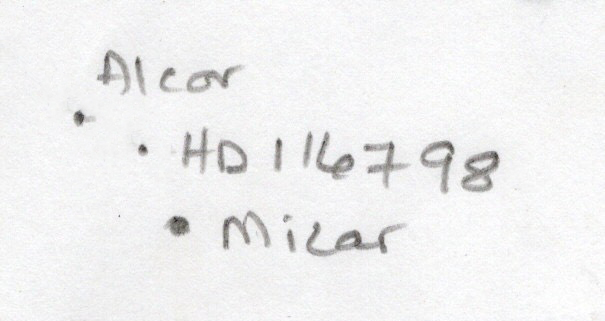 Alcor
HD 116798
Mizar